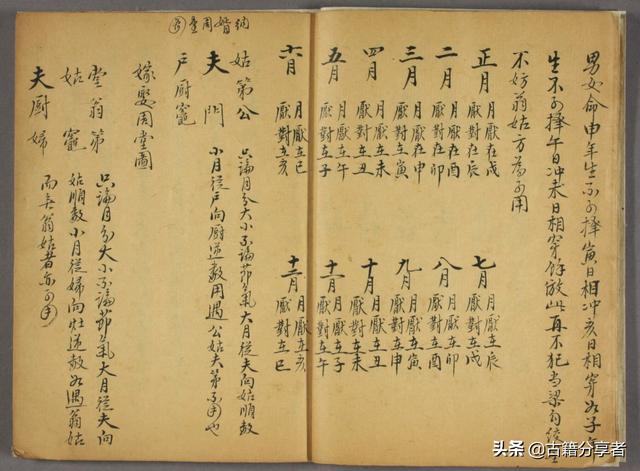 男女命申年生不可擇寅日相冲亥日相穿如子年
生不可擇午日冲未日相穿餘放此再不犯當梁勾絞
不妨翁姑方為可用
正月 月厭在戌
厭對在辰
二月 月厭在酉
厭對在卯
三月 月厭在申
厭對在寅
四月 月厭在未
厭對在丑
五月 月厭在午
厭對在子
六月 月厭在巳
厭對在亥
七月 月厭在辰
厭對在戌
八月 月厭在卯
厭對在酉
九月 月厭在寅
厭對在申
十月 月厭在丑
厭對在未
十一月 月厭在子
厭對在午
十二月 月厭在亥
厭對在巳
納婚周堂圖
姑第公
夫門
户厨竈
只論月分大小不論節氣大月從夫向姑順数
小月從户向厨逆数用遇公姑夫第不用也
嫁娶周堂圖
堂翁第
姑竈
夫厨婦
只論月分大小不論節氣大月從夫向
姑順数小月從婦向灶逆数如遇翁姑
而無翁姑者亦可用
头条 @古籍分享者